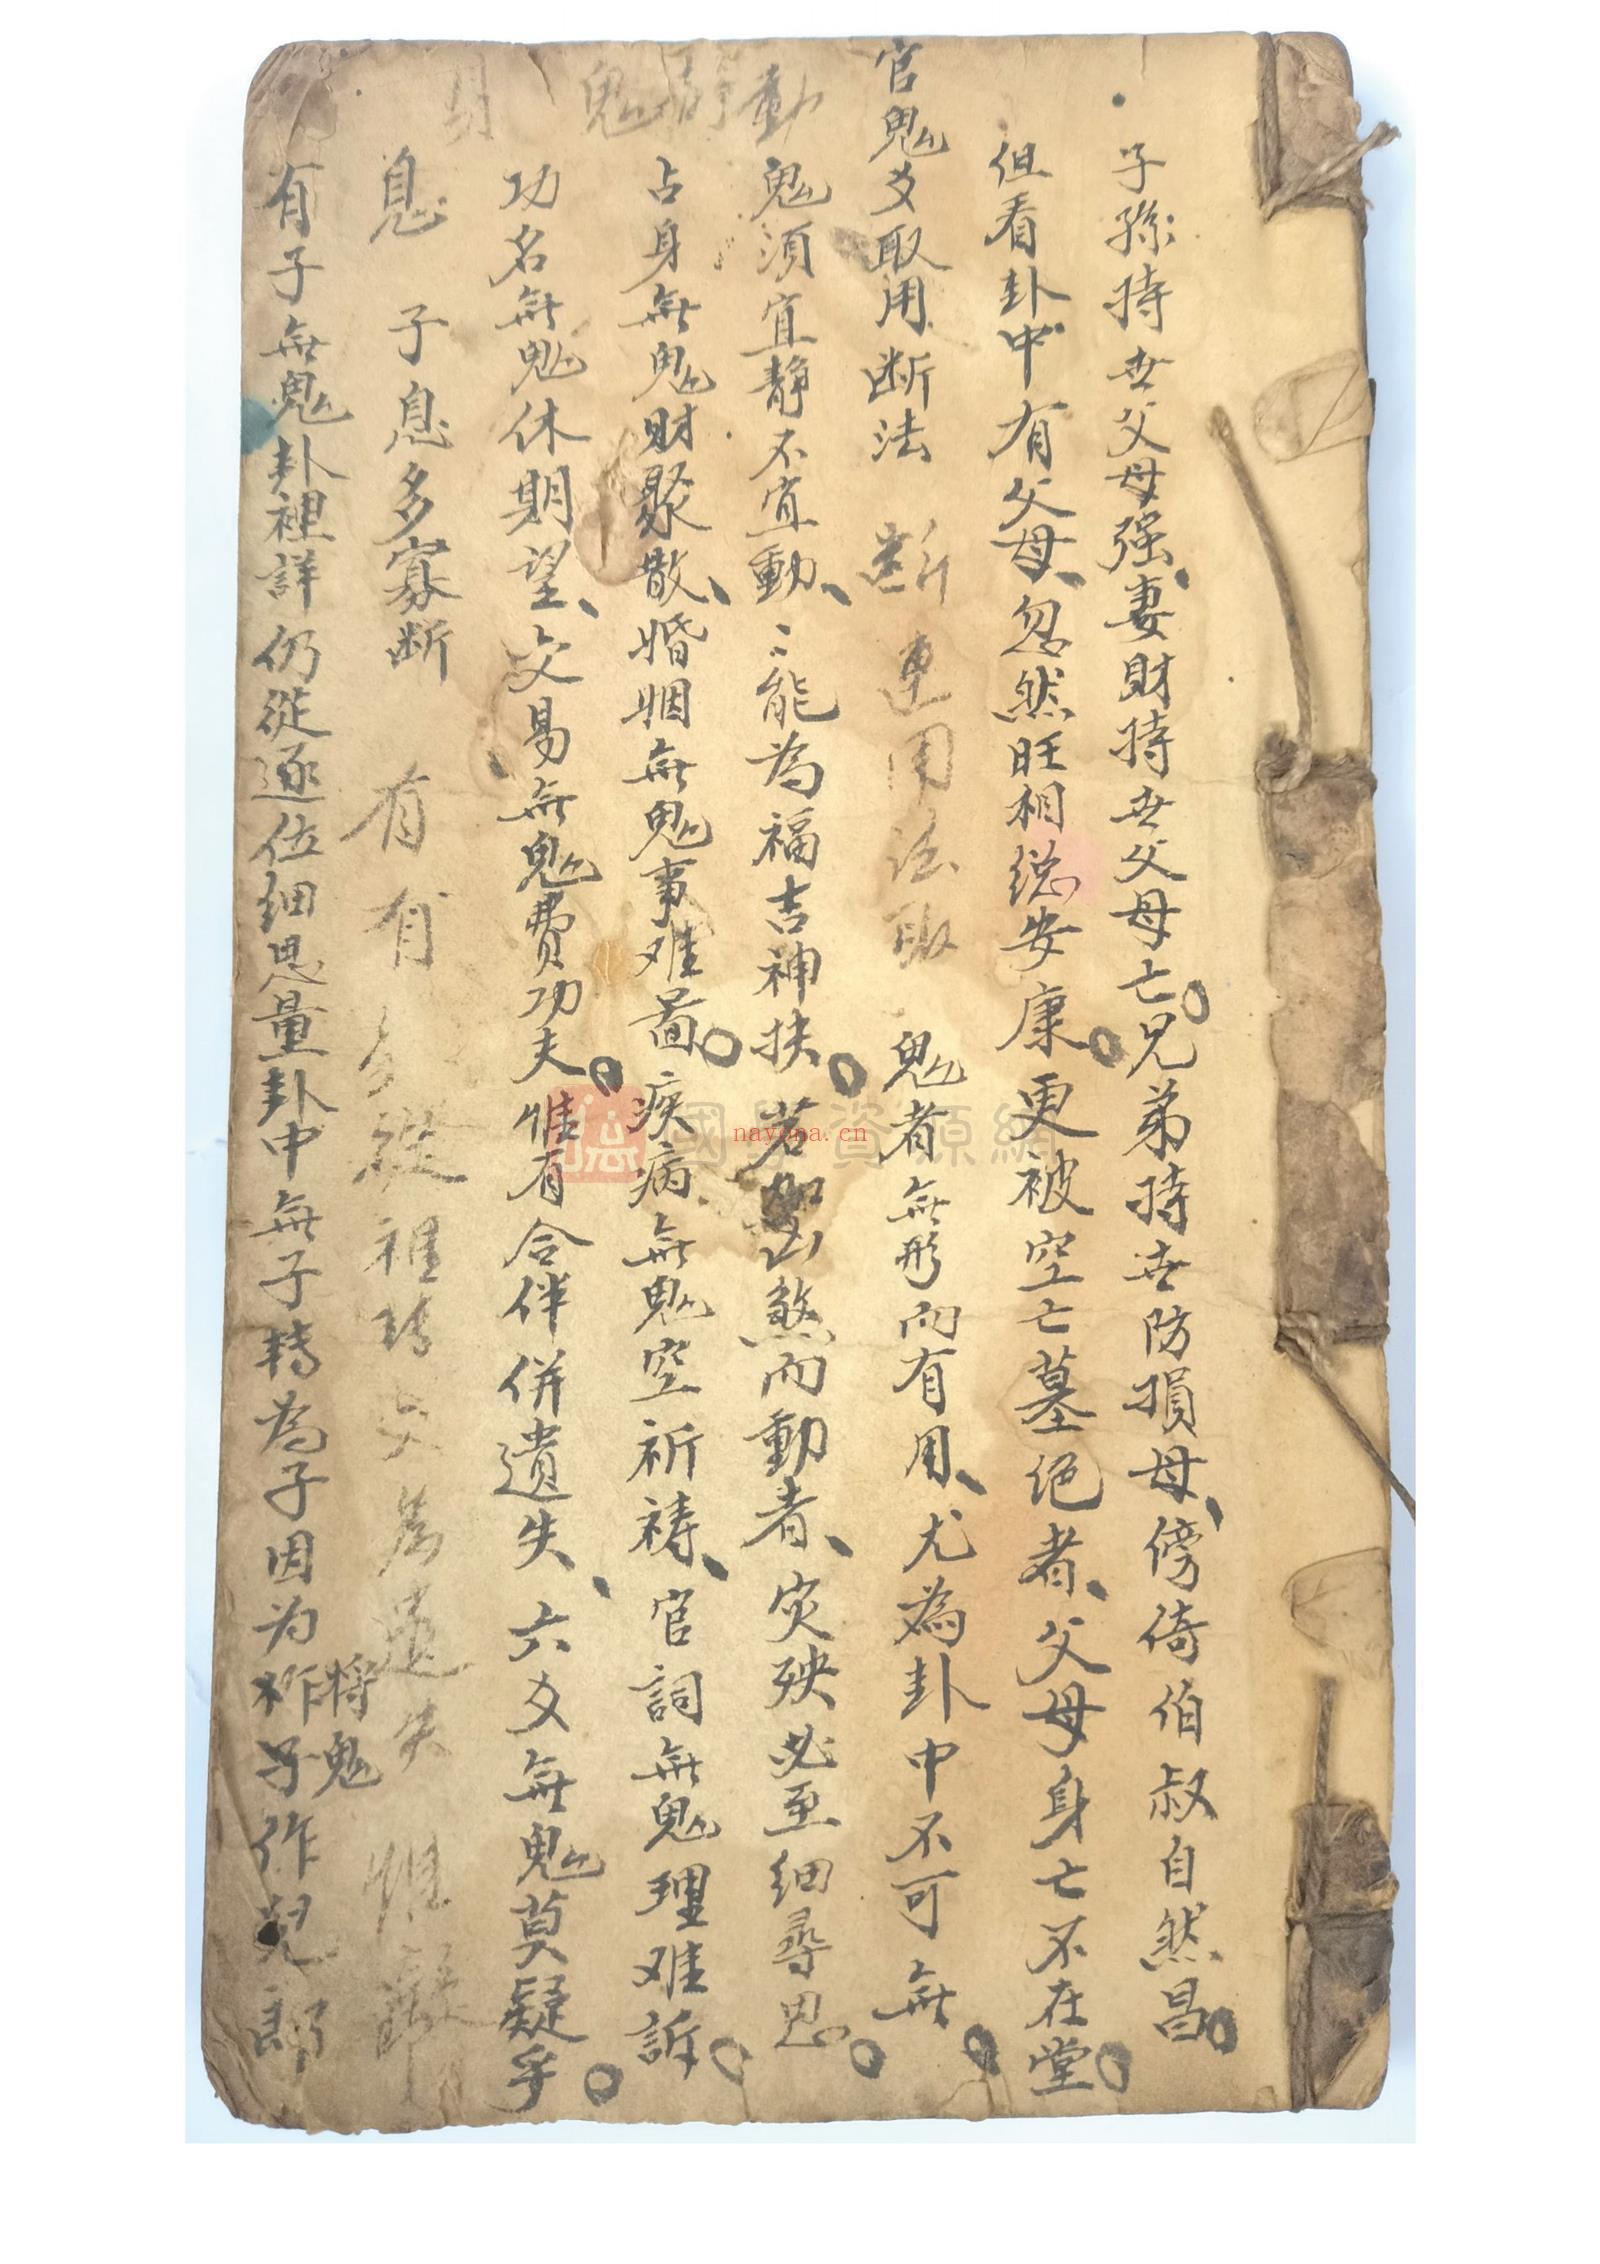 子孫持世父母强、妻財持世父母亡。兄弟持世防損母、傍倚伯叔自然昌。
但看卦中有父母、忽然旺相總安康。更被空亡墓绝者、父母身亡不在堂。
官鬼爻取用断法 断 用法取 鬼者無形而有用、尤為卦中不可無。
動 鬼 鬼須宜静不宜動、〻能為福吉神扶。若 凶煞而動者、灾殃必至細尋思。
占身無鬼財聚散、婚姻無鬼事难啚。疾病無鬼空祈禱、官詞無鬼理难訴。
功名無鬼休期望、交易無鬼費功夫。惟有合伴併遺失、六爻無鬼莫疑乎。
息 子息多寡断 有 有 從 為遺失 惟
有子無鬼卦裡詳仍從逐位细思量卦中無子轉為子因为 子作兒郎
将鬼
國學資源網
nayona.cn